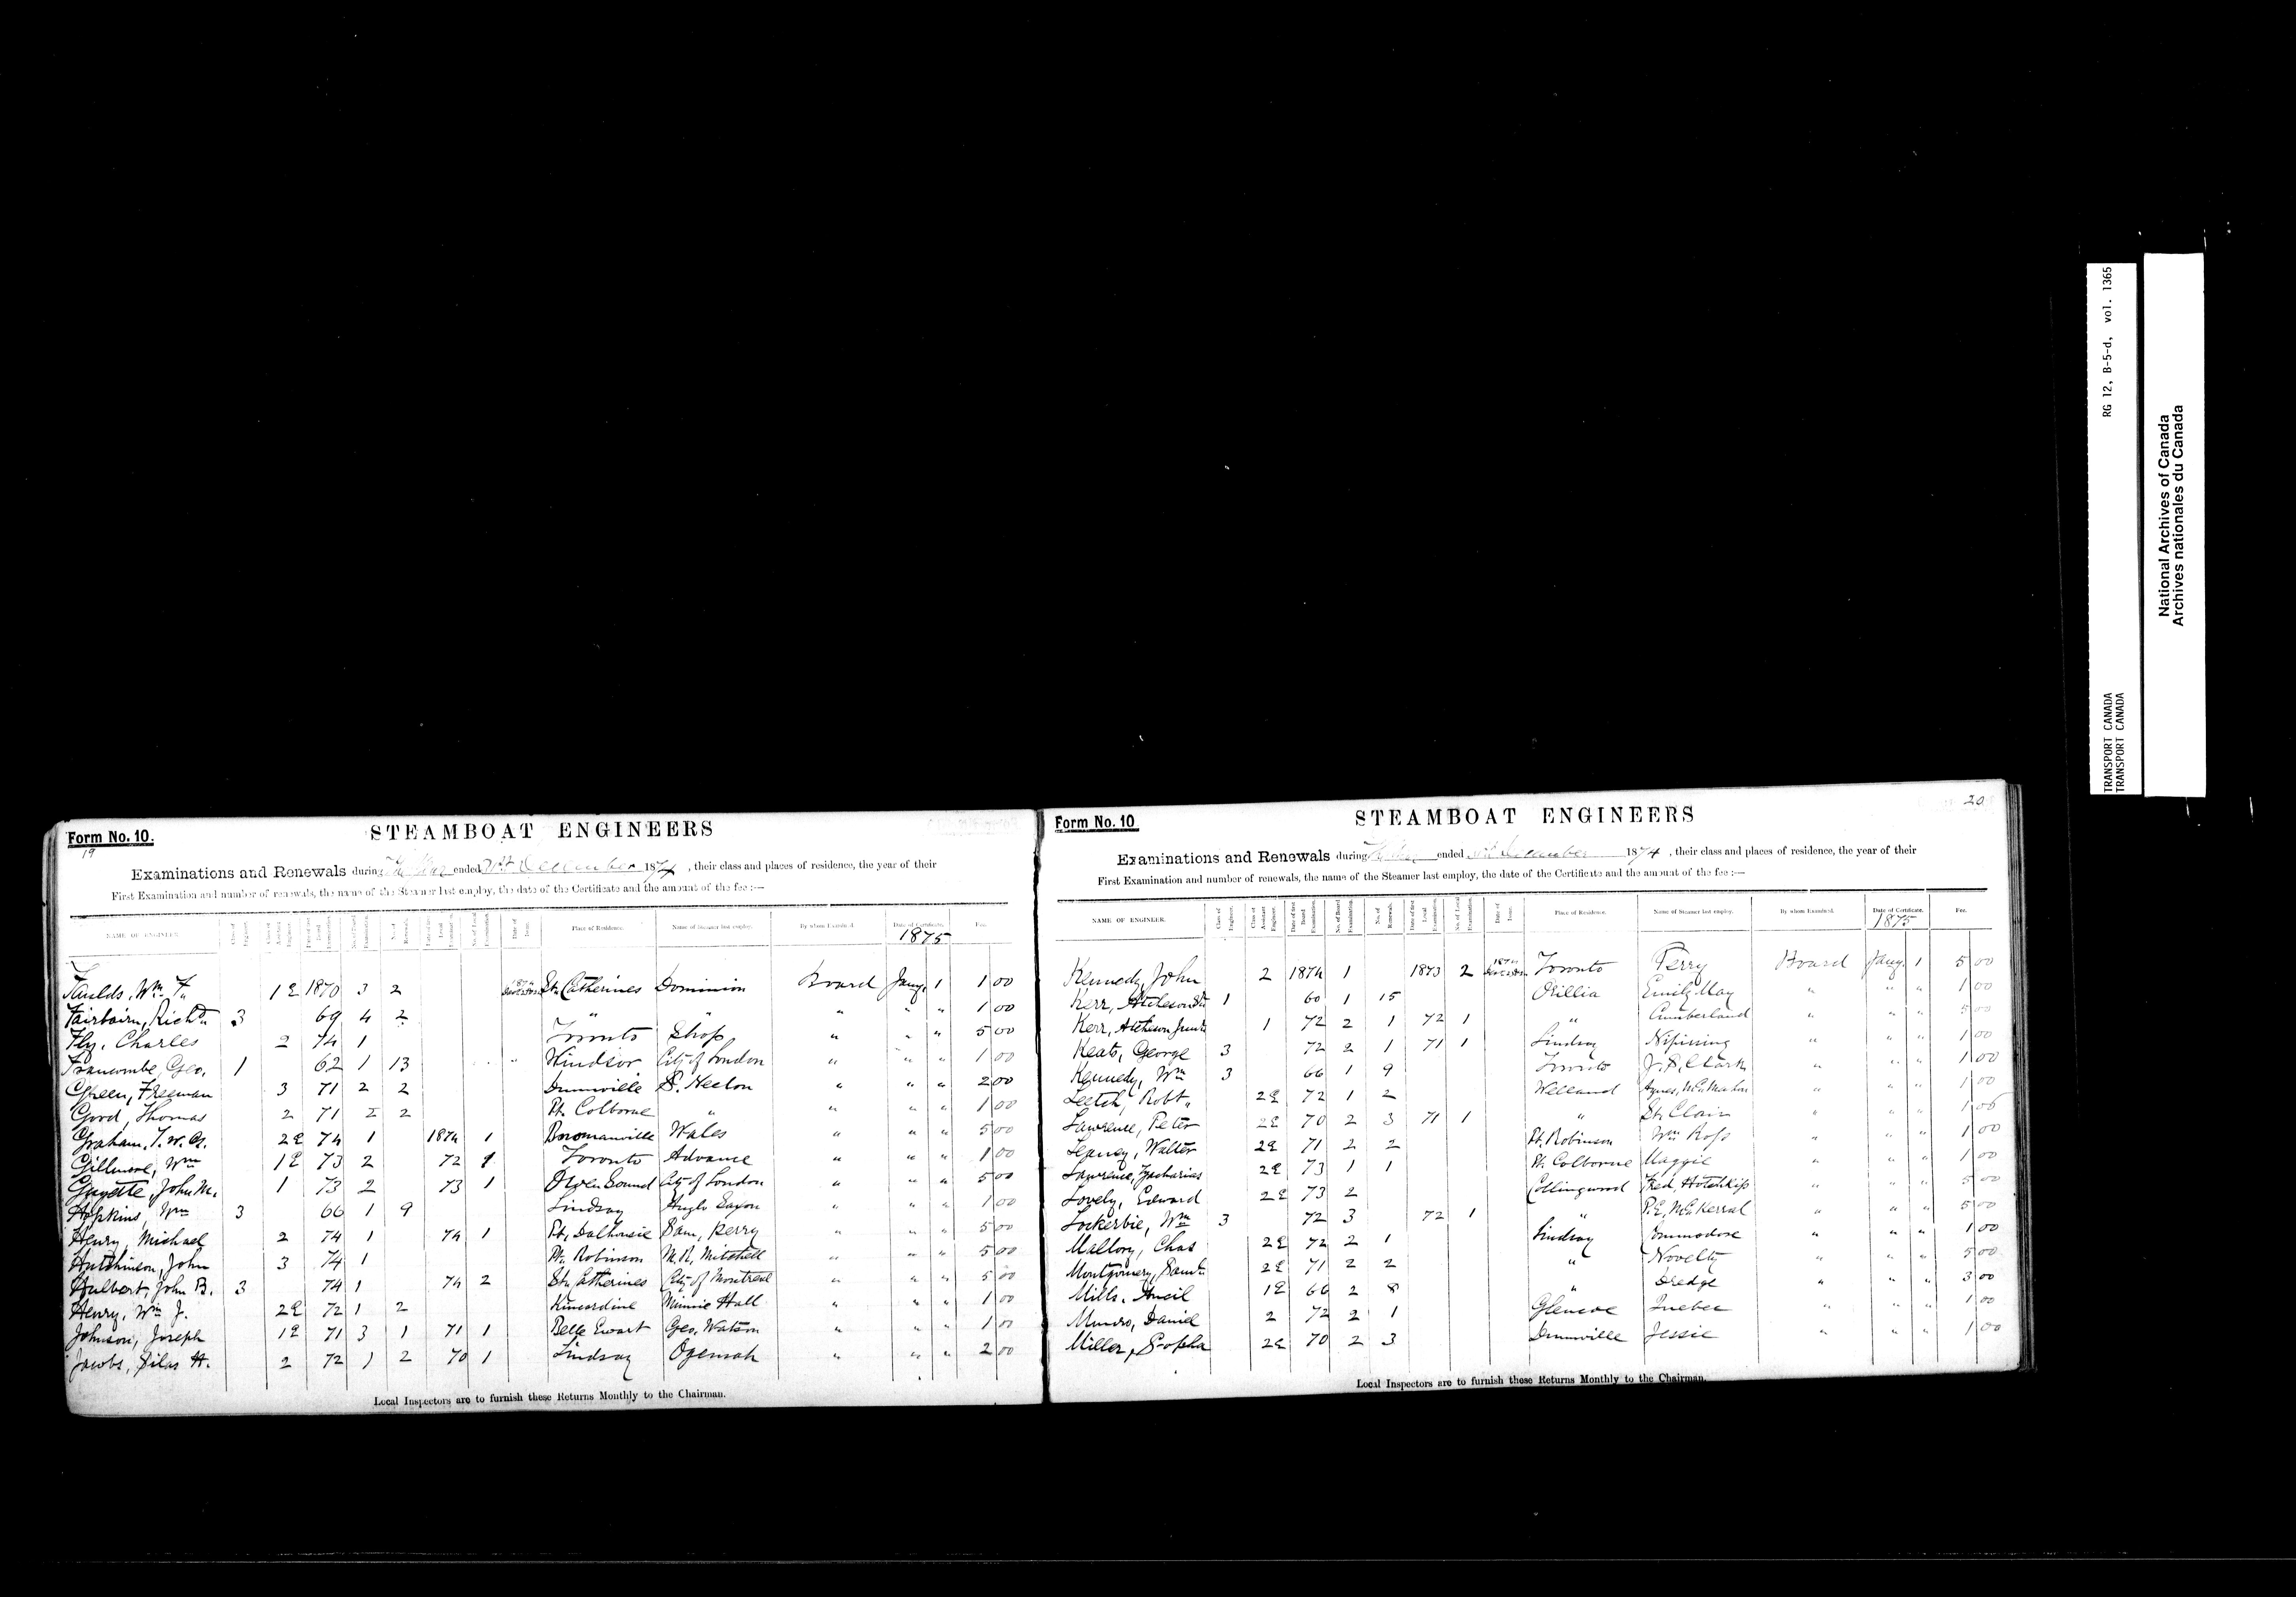 Form No. 10.
19
STEAMBOAT ENGINEERS
Examinations and Renewals during The Year ended 31st December 1874, their class and places of residence, the year of their
First Examination and number of renewals, the name of the Steamer last employ, the date of the Certificate and the amount of the fee :—
NAME OF ENGINEER. Class of Engineer. Class of Assistant Engineer. Date of first Board Examination. No. of Board Examination. No. of Renewals. Date of first Local Examination. No. of Local Examination. Date of Issue. Place of Residence. Name of Steamer last employ. By whom Examined. Date of Certificate. Fee.
1875
Faulds, Wm. F. 1 2 1870 3 2 1874 St. Catherines Dominion Board Jany. 1 1 00
Fairbairn, Richd. 3 69 4 2 " " " " " 1 00
Fly, Charles 2 74 1 Toronto Shop " " " 5 00
Francombe, Geo. 1 62 1 13 " Windsor City of London " " " 1 00
Green, Freeman 3 71 2 2 Dunnville S. Neelon " " " 2 00
Gord, Thomas 2 71 2 2 Pt. Colborne " " " " 1 00
Graham, T. W. G. 2 2 74 1 1874 1 Bowmanville Wales " " " 5 00
Gillmore, Wm 1 2 73 2 72 1 Toronto Advance " " " 1 00
Guyette, John M. 1 73 2 73 1 Owen Sound City of London " " " 5 00
Hopkins, Wm 3 66 1 9 Lindsay Anglo Saxon " " " 1 00
Henry, Michael 2 74 1 74 1 Pt. Dalhousie Sam. Perry " " " 5 00
Hutchinson, John 3 74 1 Pt. Robinson M. R. Mitchell " " " 5 00
Hulbert, John B. 3 74 1 74 2 St. Catherines City of Montreal " " " 5 00
Henry, Wm J. 2 2 72 1 2 Kincardine Minnie Hall " " " 1 00
Johnson, Joseph 1 2 71 3 1 71 1 Belle Ewart Geo. Watson " " " 1 00
Jacobs, Silas H. 2 72 1 2 70 1 Lindsay Ogemah " " " 2 00
Local Inspectors are to furnish these Returns Monthly to the Chairman.
Form No. 10
20
STEAMBOAT ENGINEERS
Examinations and Renewals during The Year ended 31st December 1874, their class and places of residence, the year of their
First Examination and number of renewals, the name of the Steamer last employ, the date of the Certificate and the amount of the fee :—
NAME OF ENGINEER. Class of Engineer. Class of Assistant Engineer. Date of first Board Examination. No. of Board Examination. No. of Renewals. Date of first Local Examination. No. of Local Examination. Date of Issue. Place of Residence. Name of Steamer last employ. By whom Examined. Date of Certificate. Fee.
1875
Kennedy, John 2 1874 1 1873 2 1874 Toronto Ferry Board Jany. 1 5 00
Kerr, Atcheson Sr 1 60 1 15 Orillia Emily May " " " 1 00
Kerr, Atcheson Junr 1 72 2 1 72 1 " Cumberland " " " 5 00
Keats, George 3 72 2 1 71 1 Lindsay Nipissing " " " 1 00
Kennedy, Wm 3 66 1 9 Toronto J. S. Clark " " " 1 00
Leetch, Robt. 2 2 72 1 2 Welland Agnes, McMahon " " " 1 00
Lawrence, Peter 2 2 70 2 3 71 1 " St. Clair " " " 1 00
Leaney, Walter 2 2 71 2 2 Pt. Robinson Wm Ross " " " 1 00
Lawrence, Zacharias 2 2 73 1 1 Pt. Colborne Maggie " " " 1 00
Lovely, Edward 2 2 73 2 Collingwood Fred. Hotchkiss " " " 5 00
Lockerbie, Wm 3 72 3 72 1 " P. E. McKerral " " " 5 00
Mallory, Chas 2 2 72 2 1 Lindsay Commodore " " " 1 00
Montgomery, Saml. 2 2 71 2 2 " Novelty " " " 5 00
Mills, Ancil 1 2 66 2 8 " Dredge " " " 3 00
Munro, Daniel 2 72 2 1 Glencoe Quebec " " " 1 00
Miller, 2 2 70 2 3 Dunnville Jessie " " " 1 00
Local Inspectors are to furnish these Returns Monthly to the Chairman.
TRANSPORT CANADA RG 12, B-5-d, vol. 1365
TRANSPORT CANADA
National Archives of Canada
Archives nationales du Canada